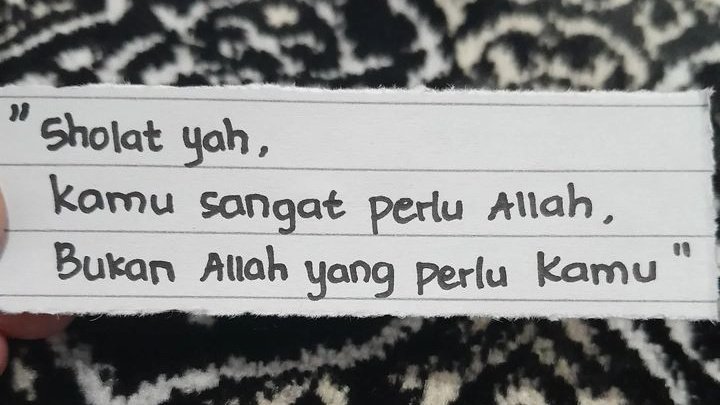 "Sholat yah,
kamu sangat perlu Allah,
Bukan Allah yang perlu kamu"